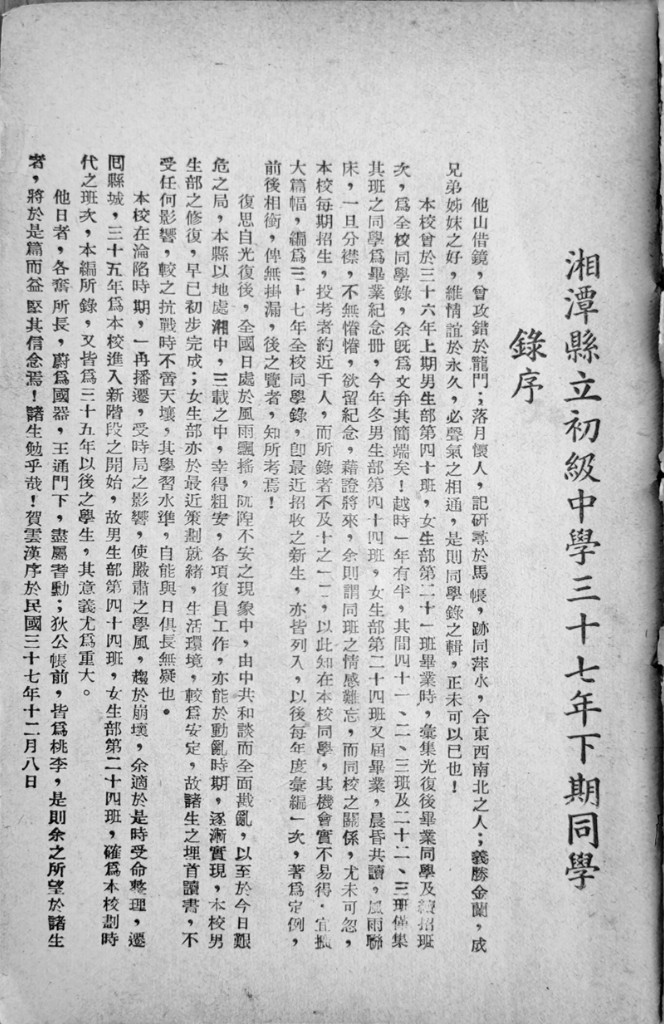 湘潭縣立初級中學三十七年下期同學
錄序
他山借鏡，曾攻錯於龍門；落月懷人，記研尋於馬帳，跡同萍水，合東西南北之人；義勝金蘭，成
兄弟姊妹之好，維情誼於永久，必聲氣之相通，是則同學錄之輯，正未可以已也！
本校曾於三十六年上期男生部第四十班，女生部第二十一班畢業時，彙集光復後畢業同學及續招班
次，爲全校同學錄，余旣爲文弁其簡端矣！越時一年有半，其間四十一、二、三班及二十二、三班僅集
其班之同學爲畢業紀念冊，今年冬男生部第四十四班，女生部第二十四班又屆畢業，晨昏共讀，風雨聯
床，一旦分襟，不無惓惓，欲留紀念，藉證將來，余則謂同班之情感難忘，而同校之關係，尤未可忽，
本校每期招生，投考者約近千人，而所錄者不及十之一二，以此知在本校同學，其機會實不易得，宜擴
大篇幅，編爲三十七年全校同學錄，卽最近招收之新生，亦皆列入，以後每年度彙編一次，著爲定例，
前後相銜，俾無掛漏，後之覽者，知所考焉！
復思自光復後，全國日處於風雨飄搖，阢隉不安之現象中，由中共和談而全面戡亂，以至於今日艱
危之局，本縣以地處湘中，三載之中，幸得粗安，各項復員工作，亦能於動亂時期，逐漸實現，本校男
生部之修復，早已初步完成；女生部亦於最近策劃就緒，生活環境，較爲安定，故諸生之埋首讀書，不
受任何影響，較之抗戰時不啻天壤，其學習水準，自能與日俱長無疑也。
本校在淪陷時期，一再播遷，受時局之影響，使嚴肅之學風，趨於崩壞，余適於是時受命整理，遷
回縣城，三十五年爲本校進入新階段之開始，故男生部第四十四班，女生部第二十四班，確爲本校劃時
代之班次，本編所錄，又皆爲三十五年以後之學生，其意義尤爲重大。
他日者，各奮所長，蔚爲國器，王通門下，盡屬耆勳；狄公帳前，皆爲桃李，是則余之所望於諸生
者，將於是篇而益堅其信念焉！諸生勉乎哉！賀雲漢序於民國三十七年十二月八日